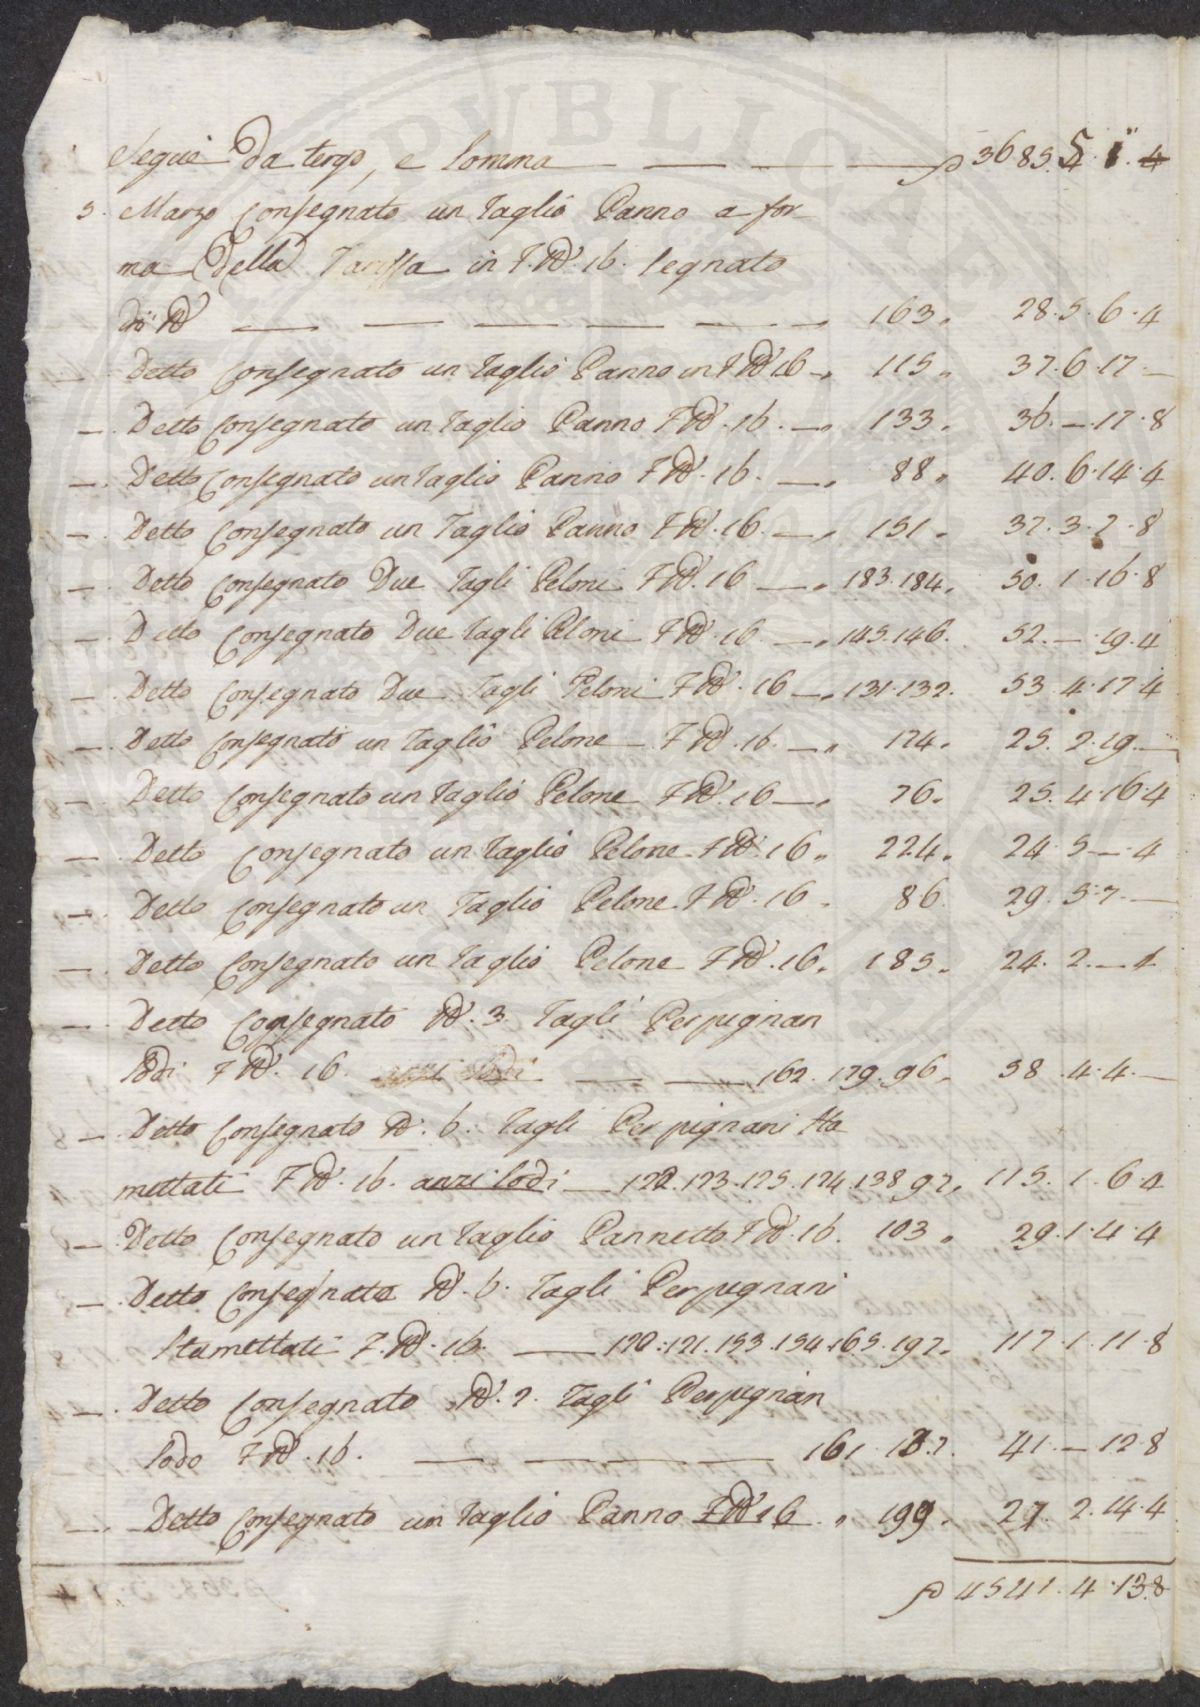 Segue da tergo, e somma — — — ₰ 3685.5.1.4
5. Marzo Consegnato un Taglio Panno a for
ma della Tariffa in F. N° 16. segnato
di N° — — — — — — 163. 28.5.6.4
— Detto Consegnato un Taglio Panno in F N° 16 — 115. 37.6.17.—
— Detto Consegnato un Taglio Panno F N°. 16. — 133. 36.—.17.8
— Detto Consegnato un Taglio Panno F N°. 16. — 88. 40.6.14.4
— Detto Consegnato un Taglio Panno F N°. 16. — 151. 37.3.7.8
— Detto Consegnato Due Tagli Peloni F N°. 16 — 183.184. 50.1.16.8
— Detto Consegnato Due Tagli Peloni F N°. 16 — 145.146. 52.—.19.4
— Detto Consegnato Due Tagli Peloni F N°. 16 — 131.132. 53.4.17.4
— Detto Consegnato un Taglio Pelone F N°. 16. — 174. 25.2.19.—
— Detto Consegnato un Taglio Pelone F N°. 16 — 76. 25.4.16.4
— Detto Consegnato un Taglio Pelone F N°. 16. 224. 24.5.—.4
— Detto Consegnato un Taglio Pelone F N°. 16. 86. 29.5.7.—
— Detto Consegnato un Taglio Pelone F N°. 16. 185. 24.2.—.4
— Detto Consegnato N°. 3 Tagli Perpignan
sodi F N°. 16. — — 162.179.96. 58.4.4.—
— Detto Consegnato N°. 6. Tagli Perpignani Sta
mettati F N°. 16. anzi sodi — 122.123.125.124.138.97. 115.1.6.4
— Detto Consegnato un Taglio Pannetto F N°. 16. 103. 29.1.4.4
— Detto Consegnato N°. 6. Tagli Perpignani
Stamettati F. N°. 16. — 120.121.153.154.165.197. 117.1.11.8
— Detto Consegnato N°. 2. Tagli Perpignan
sodo F N°. 16. — — — 161. 41.—.12.8
— Detto Consegnato un Taglio Panno F N° 16. 199. 27.2.14.4
₰ 4541.4.13.8